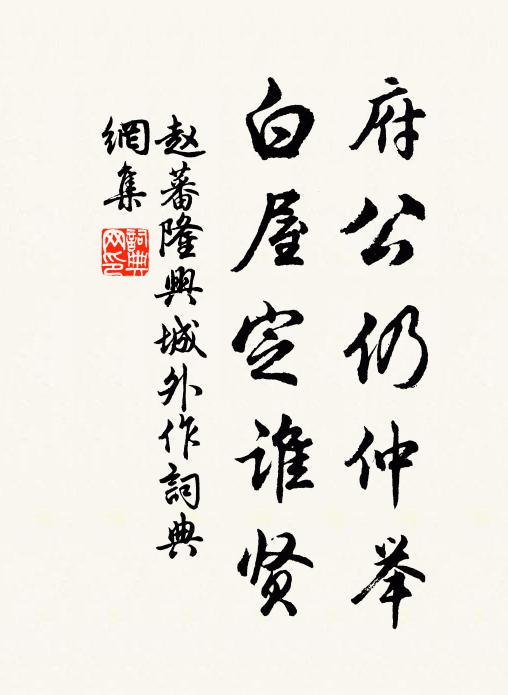 府公仍仲举
白屋定谁贤
赵蕃隆興城外作詞典
網集
詞典网印